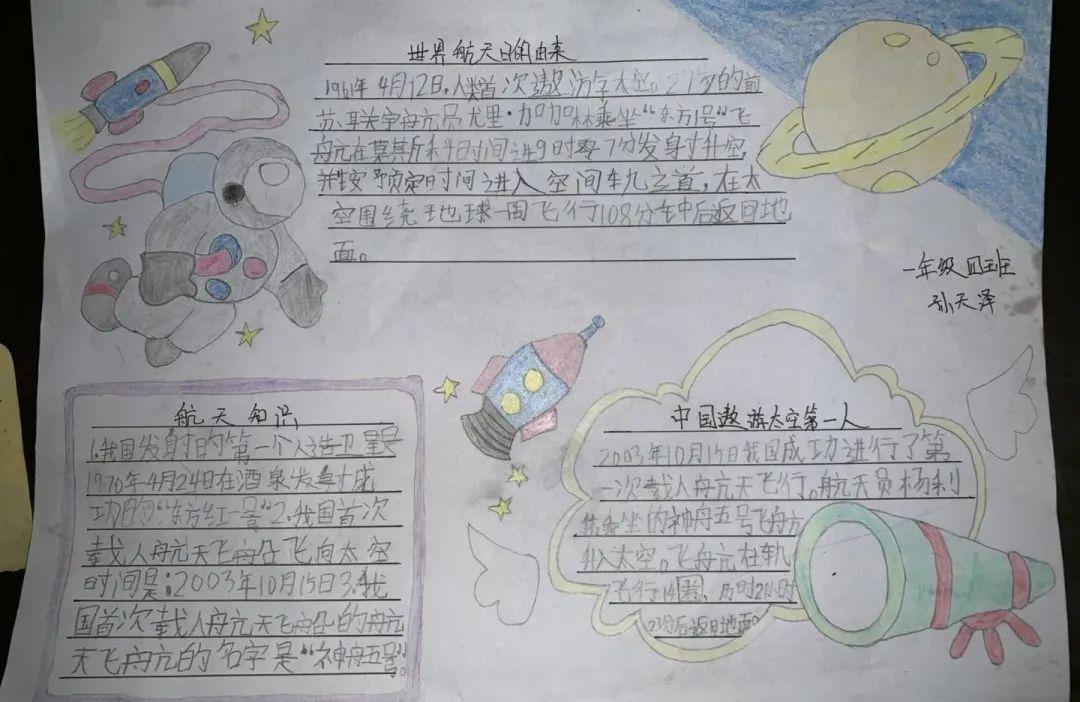 世界航天日的由来
1961年4月12日,人类首次遨游宇太空。27岁的前
苏联宇航员尤里·加加林乘坐“东方1号”飞
船在莫斯科时间上午9时零7分发射升空,
并按预定时间进入空间轨之道,在太
空围绕地球一周飞行108分钟后返回地
面。
一年级四班
孙天泽
航天知识
1.我国发射的第一个人造卫星是
1970年4月24日在酒泉发射成
功的“东方红一号”2.我国首次
载人航天飞船飞向太空
时间是:2003年10月15日3.我
国首次载人航天飞船的航
天飞船的名字是“神舟五号”。
中国遨游太空第一人
2003年10月15日我国成功进行了第
一次载人航天飞行。航天员杨利
伟乘坐的神舟五号飞船
升入太空。飞船在轨
飞行14圈,历时21小时
23分后返回地面。